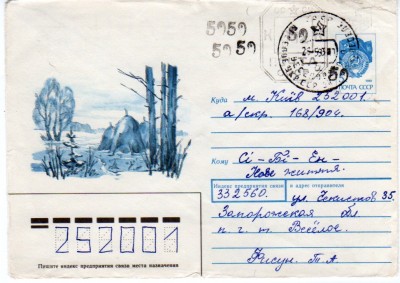 50 50
50 50
50
50
ПОЧТА СССР
Куда м. Київ 252001.
а/скр. 168/904.
Кому Сі-Бі-Ен-
Нове життя.
Индекс предприятия связи и адрес отправителя
332560. ул. Чекистов 35.
Запорожская обл.
п. г. т. Весёлое.
Фисун. Т. А.
252001
Пишите индекс предприятия связи места назначения